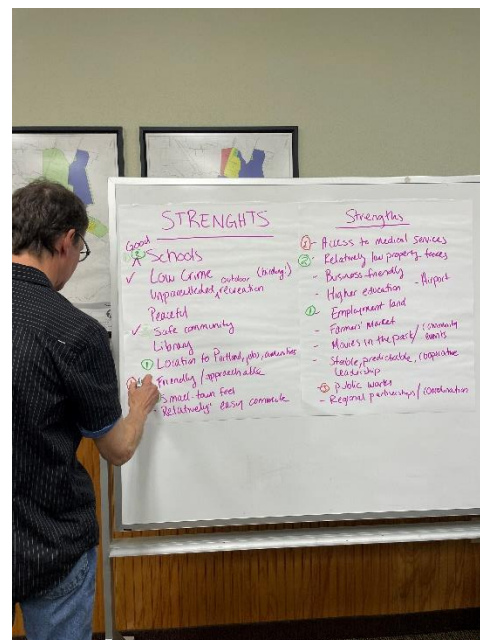 STRENGHTS
Good
2 Schools
✓ Low Crime
outdoor (birding!)
Unparalleled recreation
Peaceful
✓ Safe community
Library
① Location to Portland, jobs, amenities
Friendly/approachable
Small-town feel
- Relatively easy commute
Strengths
①- Access to medical services
②- Relatively low property taxes
- Business-friendly
- Higher education - Airport
①- Employment land
- Farmers' Market
- Movies in the park/community events
- Stable, predictable, cooperative
leadership
③ public works
- Regional partnerships/coordination